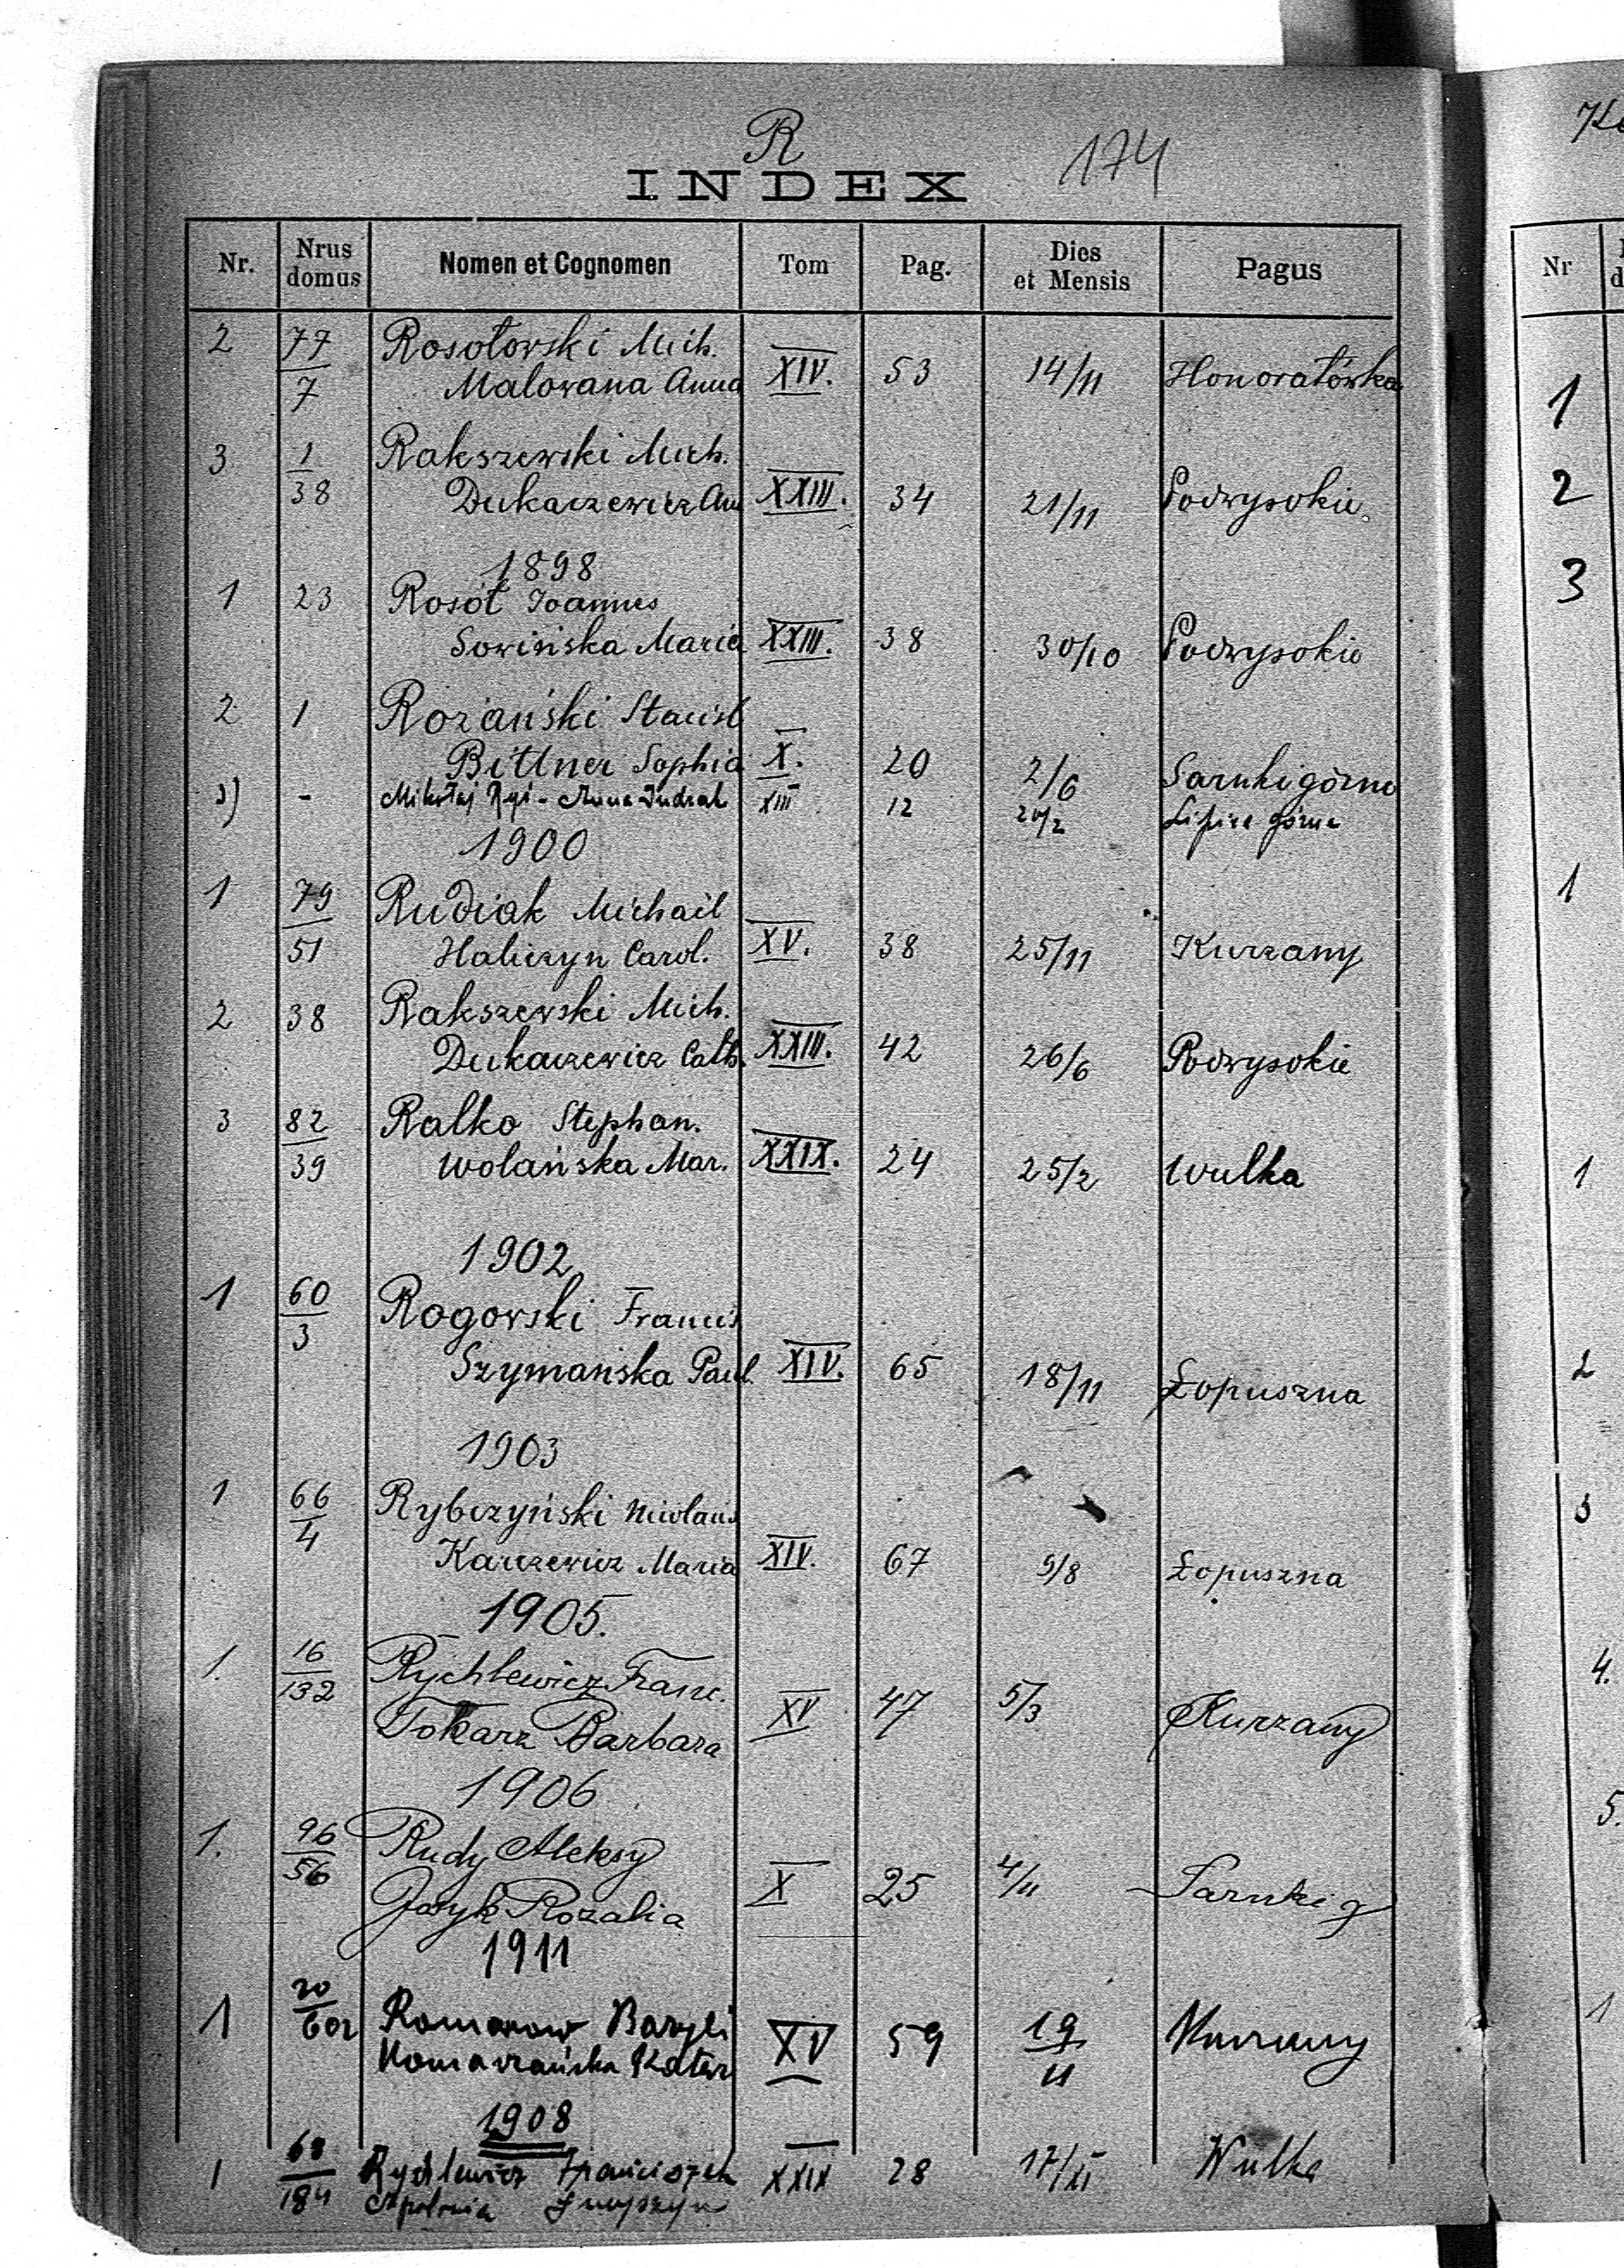 R
174
INDEX
Nr. Nrus domus Nomen et Cognomen Tom Pag. Dies et Mensis Pagus
2 77/7 Rosołowski Mich.
Malowana Anna XIV. 53 14/11 Honoratówka
3 1/38 Rakszewski Mich.
Dukaczewicz An XXIII. 34 21/11 Podwysokie
1898
1 23 Rosół Joannes
Sowińska Maria XXIII. 38 30/10 Podwysokie
2 1 Rozański Stanisł
Bittner Sophia X. 20 2/6 Sarnki górne
3) - Mikołaj - Anna XIII 12 20/2 Lipica górna
1900
1 79/51 Rudiak Michail
Haliczyn Carol. XV. 38 25/11 Kurzany
2 38 Rakszewski Mich.
Dukaczewicz Cath. XXIII. 42 26/6 Podwysokie
3 82/39 Ralko Stephan.
Wolańska Mar. XXIX. 24 25/2 Wulka
1902
1 60/3 Rogowski Francis
Szymańska Paul. XIV. 65 18/11 Łopuszna
1903
1 66/4 Rybczyński Nicolaus
Karczewicz Maria XIV. 67 9/8 Łopuszna
1905.
1. 16/132 Rychlewicz Franc.
Tokarz Barbara XV 47 5/3 Kurzany
1906
1. 96/56 Rudy Aleksy
Rozalia X 25 4/11 Sarnki g
1911
1 20/602 Romanow Bazyli
Komarzańska Katar XV 59 19/11 Kurzany
1908
1 68/184 Rychlewicz Franciszek XXIX 28 17/XI Wulka
Apolonia
Nr
1
2
3
1
1
2
3
4.
5.
1